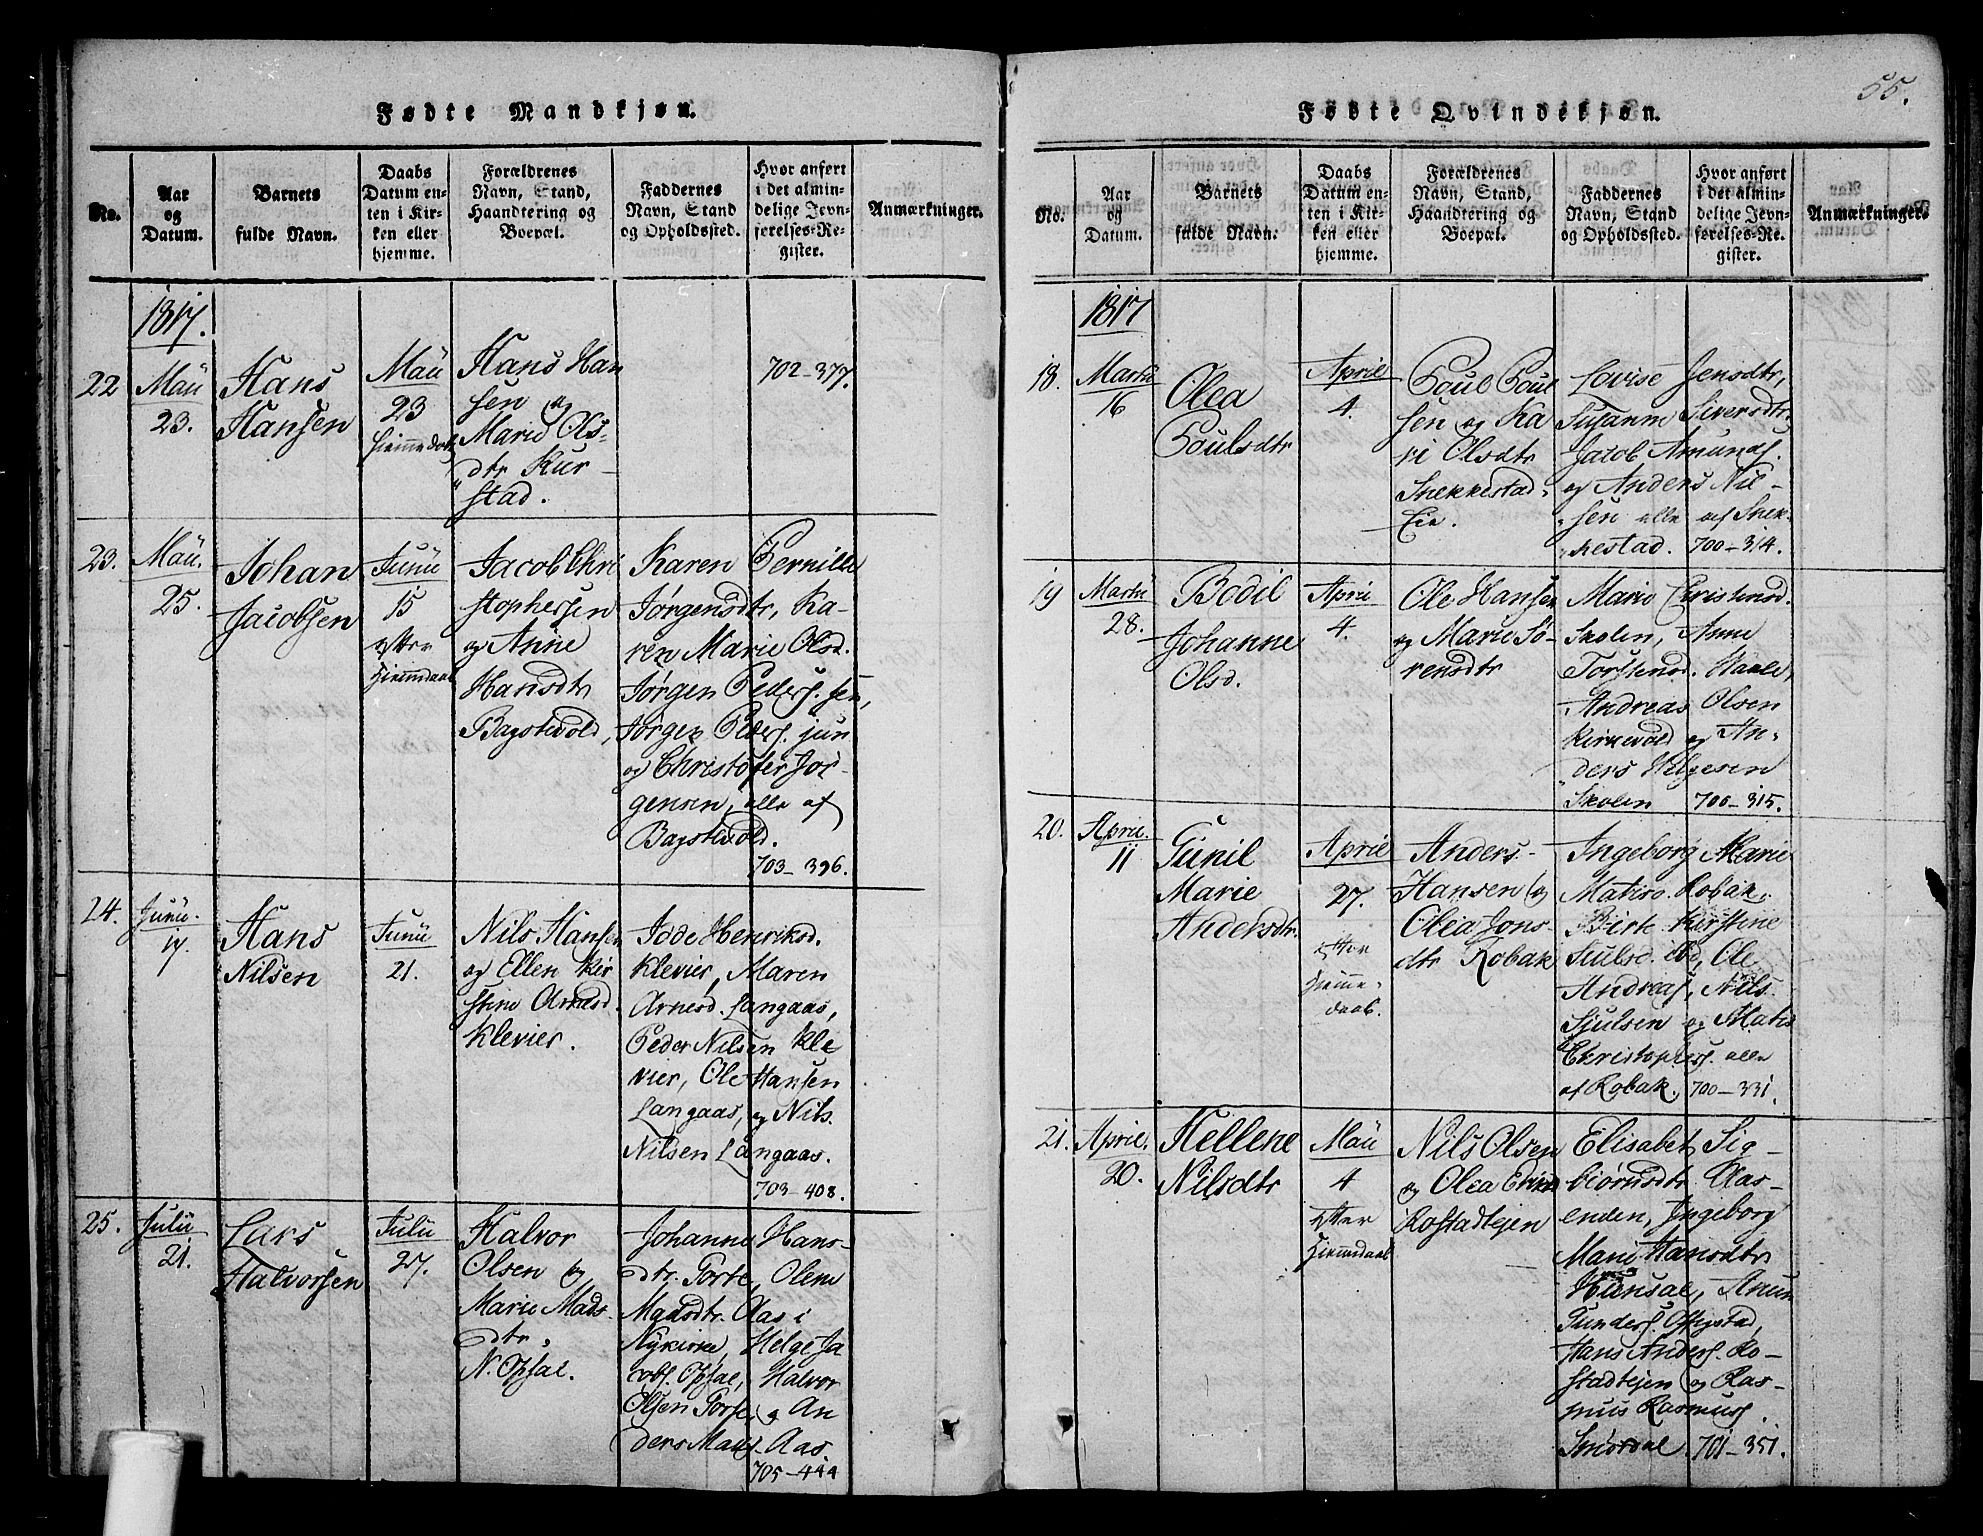 Fødte Mandkjøn.
No.
Aar
og
Datum.
Barnets
fulde Navn.
Daabs
Datum en-
ten i Kir-
ken eller
hjemme.
Forældrenes
Navn, Stand,
Haandtering og
Boepæl.
Faddernes
Navn, Stand
og Opholdssted.
Hvor anført
i det almin-
delige Jevn-
førelses-Re-
gister.
Anmærkninger.
1817.
22
Mäii
23.
Hans
Hansen
Mäii
23
Hans Han
sen og
Marie Ols-
dtr Kur-
stad.
702-377.
23.
Mäii.
25.
Johan
Jacobsen
Junii
15
efter
Hiemdaab
Jacob Chri
stophersen
og Anne
Hansdtr
Bagstevold,
Karen Pernille
Jørgensdtr, Ka-
ren Marie Olsd.
Jørgen Peders. sen,
Jørgen Peders. jun
og Christofer Jør-
gensen, alle af
Bagstevold.
703-396.
24.
Junii.
17.
Hans
Nilsen
Junii
21.
Nils Hansen
og Ellen Kir
stine Arnesd.
Klevier.
Jode Henriksd.
Klevier, Maren
Arnesd. Langaas,
Peder Nilsen Kle
vier, Ole Hansen
Langaas, og Nils
Nilsen Langaas.
703-408.
25.
Julii
21.
Lars
Halvorsen
Julii
27.
Halvor
Olsen og
Marie Mads
dtr.
N. Opsal.
Johanne Hans-
dtr. Gorte, Olene
Madsdtr. Aas i
Nykirke, Helge Ja
cobs. Opsal, Halvor
Olsen Gorse, og An
ders Mads. Aas
705-444
55.
Fødte Qvindekjøn.
No.
Aar
og
Datum.
Barnets
fulde Navn.
Daabs
Datum en-
ten i Kir-
ken eller
hjemme.
Forældrenes
Navn, Stand,
Haandtering og
Boepæl.
Faddernes
Navn, Stand
og Opholdssted.
Hvor anført
i det almin-
delige Jevn-
førelses-Re-
gister.
Anmærkninger.
1817
18.
Martii
16
Olea
Poulsdtr
April
4.
Poul Poul
sen og Ka
ri Olsdtr
Snekkestad
Eie.
Lovise Jensdtr,
Susanna Siversdtr.
Jacob Amunds.
og Anders Niel-
sen alle af Snek-
kestad. 700-314.
19
Martii
28.
Bodil
Johanne
Olsd.
April
4.
Ole Hansen
og Marie Sø-
rensdtr
Marie Christensd.
Skolen, Anne
Torstensd. Haale,
Andreas Olsen
Kirkevold og An-
ders Helgesen
Skolen 700-315.
20.
April.
11
Gunil
Marie
Andersdtr.
April
27.
efter
Hiemme-
daab.
Anders
Hansen og
Olea Jons-
dtr Robak
Ingeborg Marie
Matisd. Robak,
Birte Kirstine
Siulsd. ibd, Ole
Andreas, Nils
Sjulsen og Matis
Christophers. alle
af Robak. 700-331.
21.
April.
20.
Hellene
Nilsdtr
Mäii
4
efter
Hiemmdaab
Nils Olsen
og Olea
Rostadtejen
Elisabet Sig-
biørnsdtr. Aas-
enden, Ingeborg
Marie Hansdtr
Hansal,
Gunders.
Hans Anders. Ro-
stadtejen og Ras-
mus Rasmus.
Smørdal. 701-351.